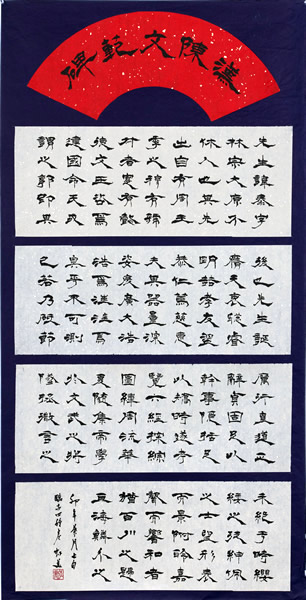 漢陳文範碑
先生諱泰字
林宗大原介
休人也其先
出自有周王
季之穆有虢
叔者寔有懿
德文王咨焉
建國命氏或
謂之郭即其
後也先生誕
膺天衷聰睿
明哲孝友溫
恭仁篤慈惠
夫其器量深
姿度廣大浩
浩焉汪汪焉
奧乎不可測
已若乃砥節
厲行直道正
辭貞固足以
幹事隱括足
以矯時遂考
覽六經探綜
圖緯周流華
夏隨集帝學
收文武之將
墜拯微言之
未絕于時纓
緌之徒紳佩
之士望形表
而景附聆嘉
聲而響和者
猶百川之歸
巨海鱗介之